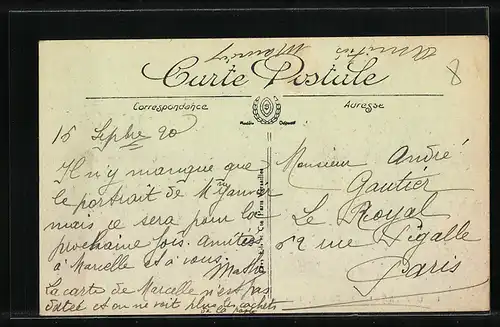 Amitiés
Carte Postale
8
Correspondance
Adresse
15 Septbre 20
Il n'y manque que
le portrait de Mr Janvier
mais ce sera pour la
prochaine fois. Amitiés
à Marcelle et à vous.
La carte de Marcelle n'est pas
datée et on ne voit plus les cachets
de la poste
Monsieur André
Gautier
Le Royal
62 rue Pigalle
Paris